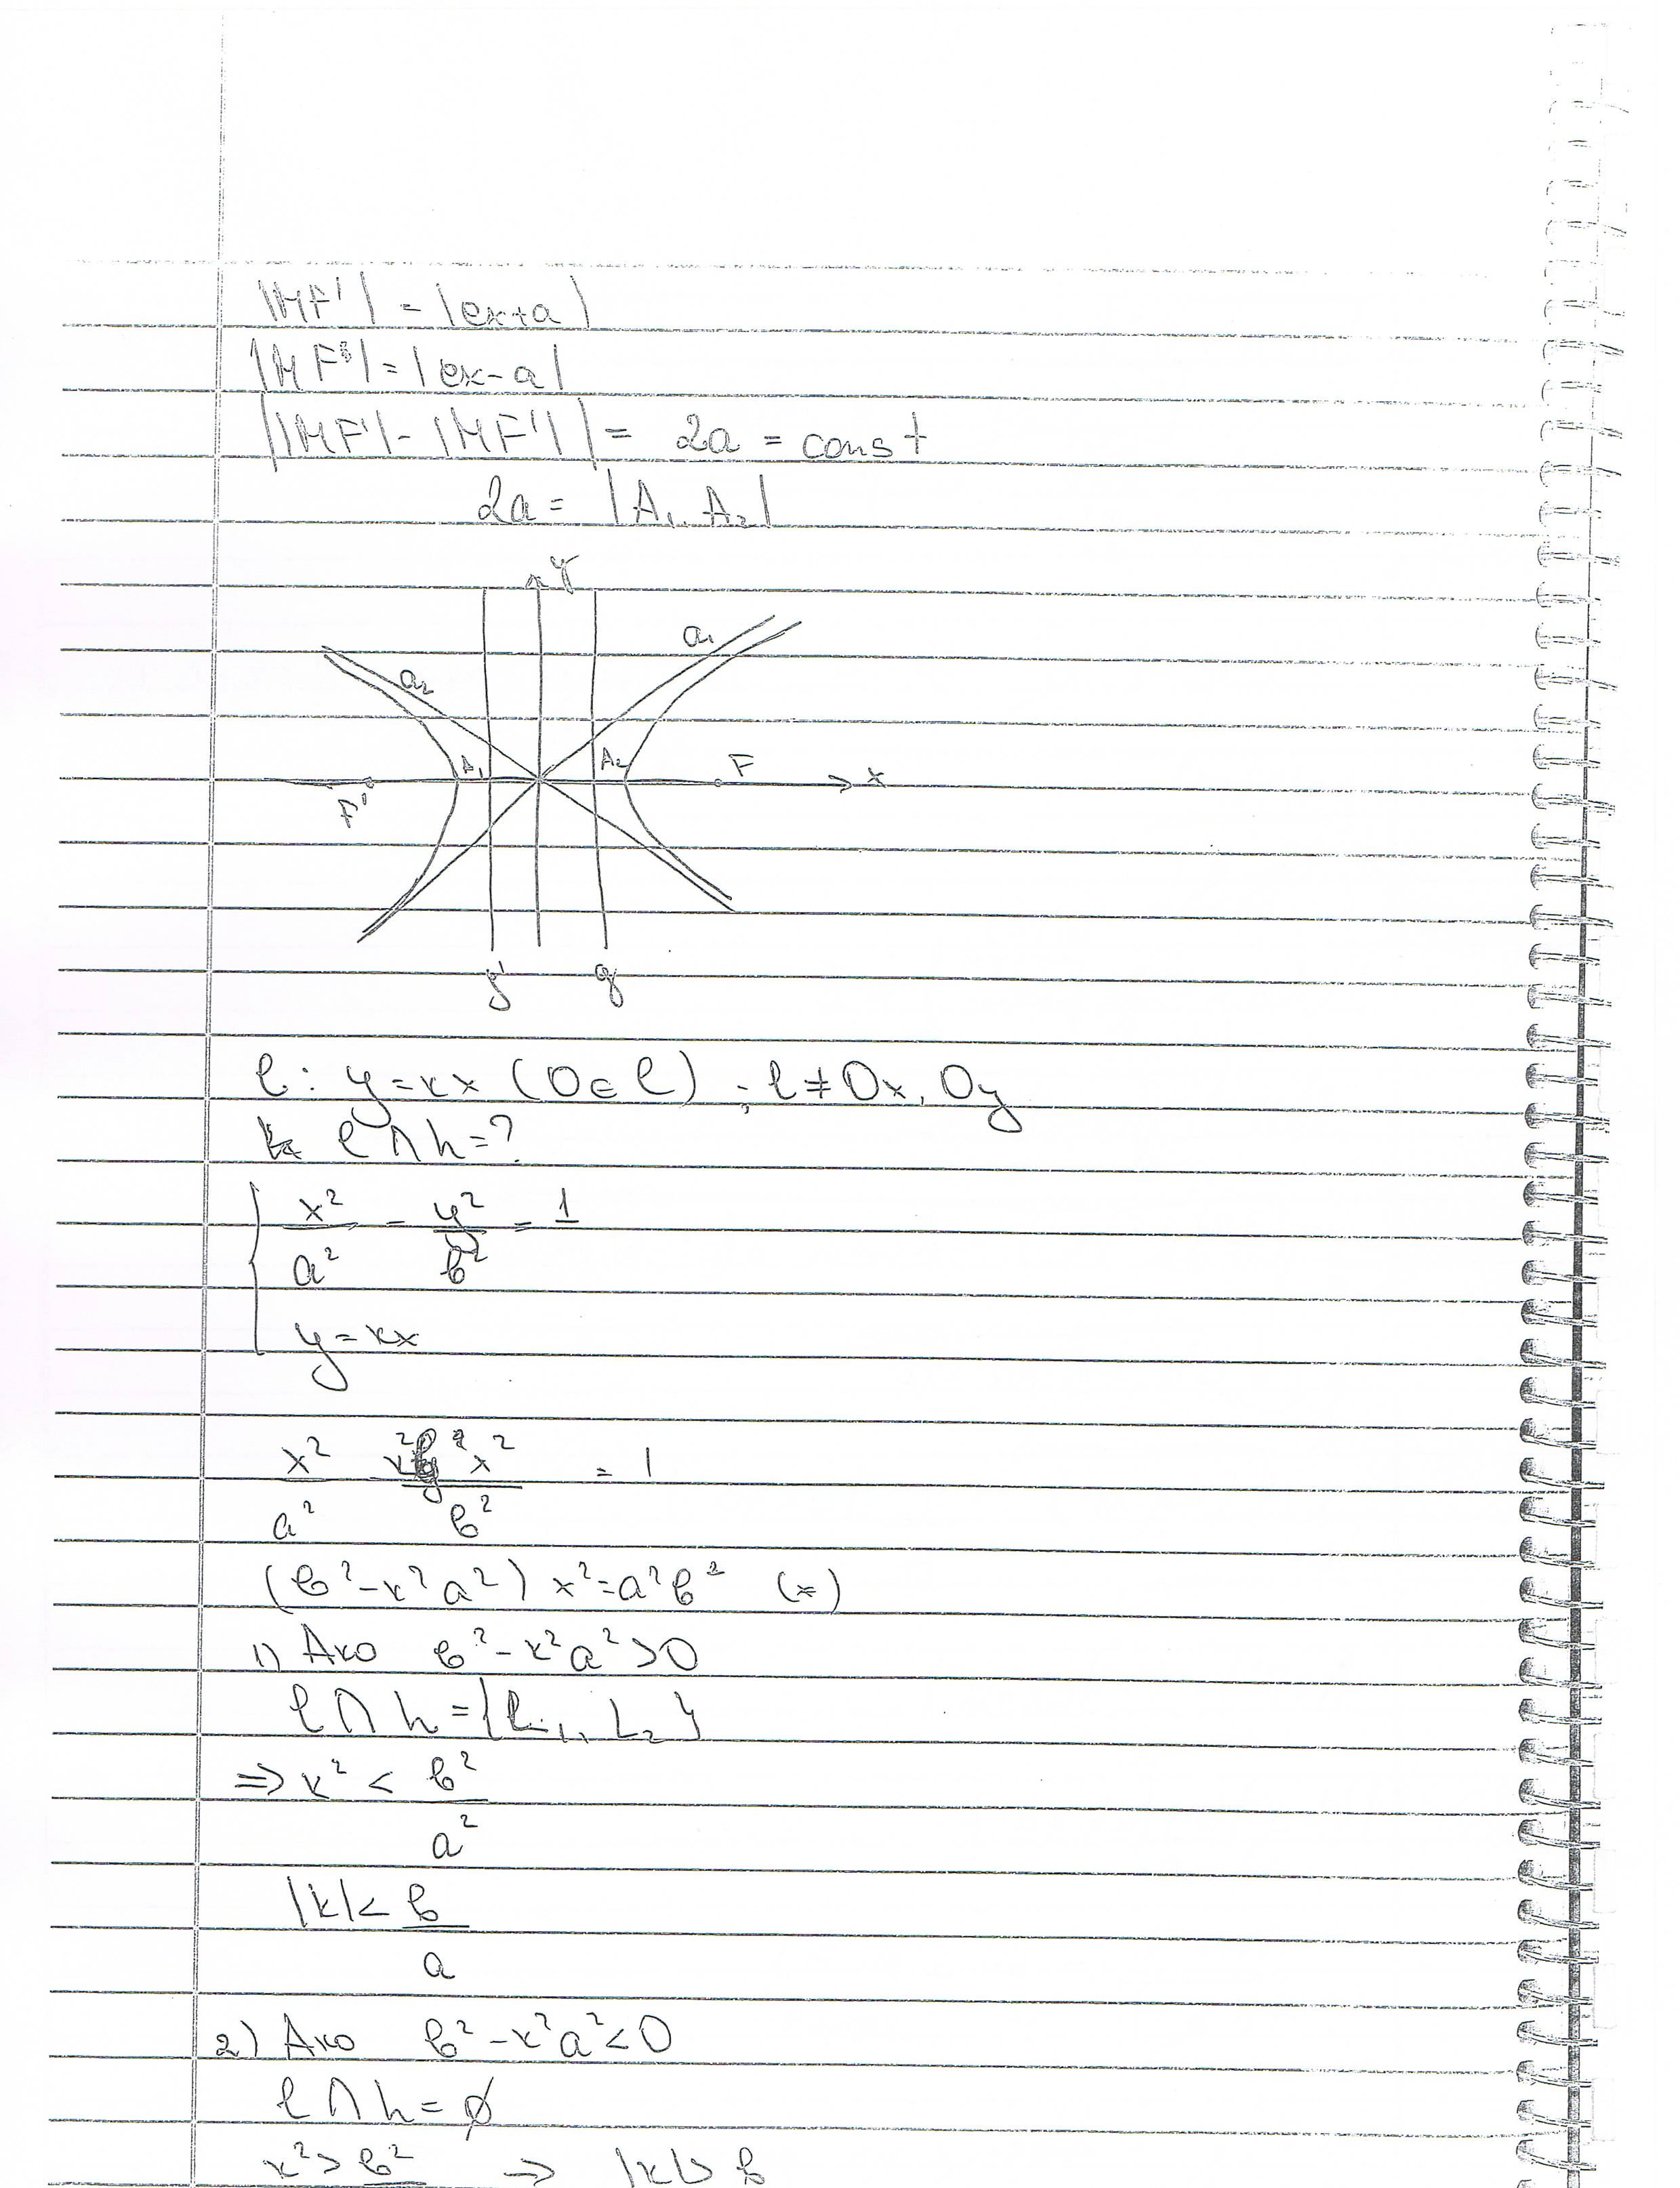 |MF'| = |ex+a|
|MF| = |ex-a|
||MF'| - |MF'|| = 2a = const
2a = |A₁ A₂|
y
a₁
a₂
A₁
A₂
F
x
F'
g'
g
l : y = kx (O ∈ l) ; l ≠ Ox, Oy
l ∩ h = ?
x²/a² - y²/b² = 1
y = kx
x²/a² k² x²/b² = 1
(b² - k² a²) x² = a² b² (*)
1) Ако b² - k² a² > 0
l ∩ h = {L₁, L₂}
⇒ k² < b²/a²
|k| < b/a
2) Ако b² - k² a² < 0
l ∩ h = ∅
k² > b² ⇒ |k| > b